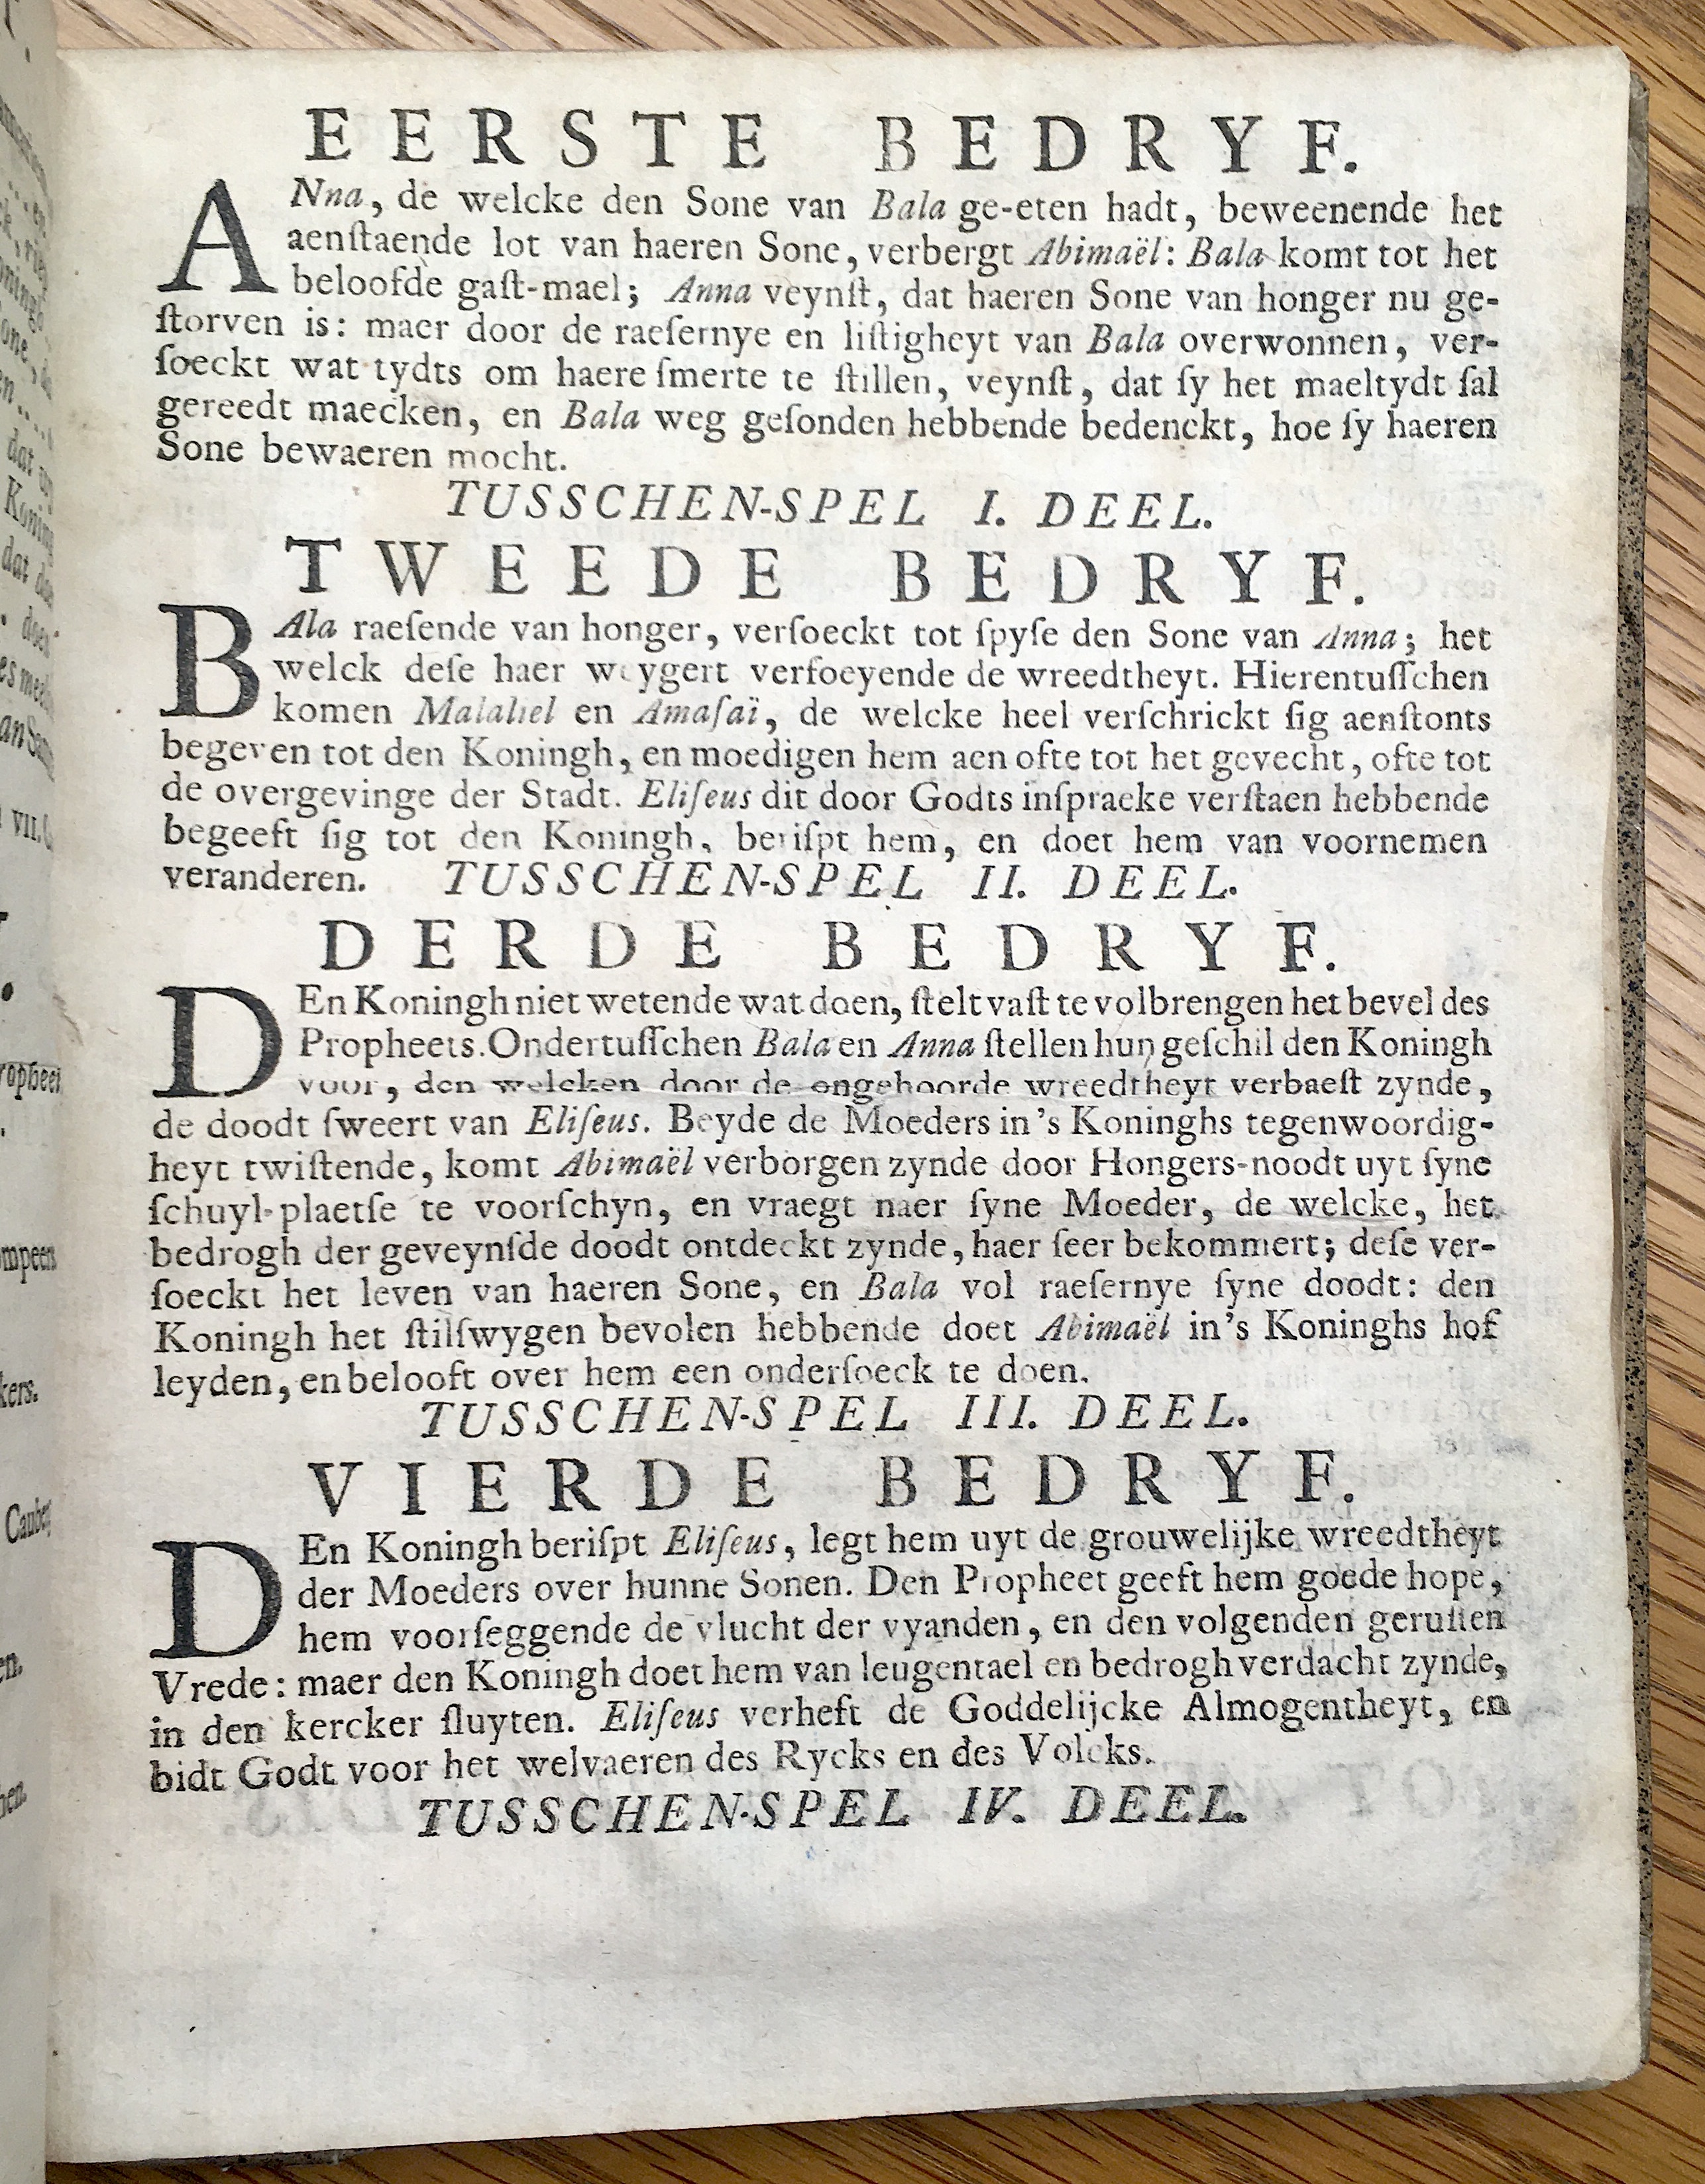 EERSTE BEDRYF.
ANna, de welcke den Sone van Bala ge-eten hadt, beweenende het
aenſtaende lot van haeren Sone, verbergt Abimaël: Bala komt tot het
beloofde gaſt-mael; Anna veynſt, dat haeren Sone van honger nu ge-
ſtorven is: maer door de raeſernye en liſtigheyt van Bala overwonnen, ver-
ſoeckt wat tydts om haere ſmerte te ſtillen, veynſt, dat ſy het maeltydt ſal
gereedt maecken, en Bala weg geſonden hebbende bedenckt, hoe ſy haeren
Sone bewaeren mocht.
TUSSCHEN-SPEL I. DEEL.
TWEEDE BEDRYF.
BAla raeſende van honger, verſoeckt tot ſpyſe den Sone van Anna; het
welck deſe haer weygert verfoeyende de wreedtheyt. Hierentuſſchen
komen Malaliel en Amaſaï, de welcke heel verſchrickt ſig aenſtonts
begeven tot den Koningh, en moedigen hem aen ofte tot het gevecht, ofte tot
de overgevinge der Stadt. Eliſeus dit door Godts inſpraeke verſtaen hebbende
begeeft ſig tot den Koningh, beriſpt hem, en doet hem van voornemen
veranderen. TUSSCHEN-SPEL II. DEEL.
DERDE BEDRYF.
DEn Koningh niet wetende wat doen, ſtelt vaſt te volbrengen het bevel des
Propheets. Ondertuſſchen Bala en Anna ſtellen hun geſchil den Koningh
voor, den welcken door de ongehoorde wreedtheyt verbaeſt zynde,
de doodt ſweert van Eliſeus. Beyde de Moeders in's Koninghs tegenwoordig-
heyt twiſtende, komt Abimaël verborgen zynde door Hongers-noodt uyt ſyne
ſchuyl-plaetſe te voorſchyn, en vraegt naer ſyne Moeder, de welcke, het
bedrogh der geveynſde doodt ontdeckt zynde, haer ſeer bekommert; deſe ver-
ſoeckt het leven van haeren Sone, en Bala vol raeſernye ſyne doodt: den
Koningh het ſtilſwygen bevolen hebbende doet Abimaël in's Koninghs hof
leyden, en belooft over hem een onderſoeck te doen.
TUSSCHEN-SPEL III. DEEL.
VIERDE BEDRYF.
DEn Koningh beriſpt Eliſeus, legt hem uyt de grouwelijke wreedtheyt
der Moeders over hunne Sonen. Den Propheet geeft hem goede hope,
hem voorſeggende de vlucht der vyanden, en den volgenden geruſten
Vrede: maer den Koningh doet hem van leugentael en bedrogh verdacht zynde,
in den kercker ſluyten. Eliſeus verheft de Goddelijcke Almogentheyt, en
bidt Godt voor het welvaeren des Rycks en des Volcks.
TUSSCHEN-SPEL IV. DEEL.